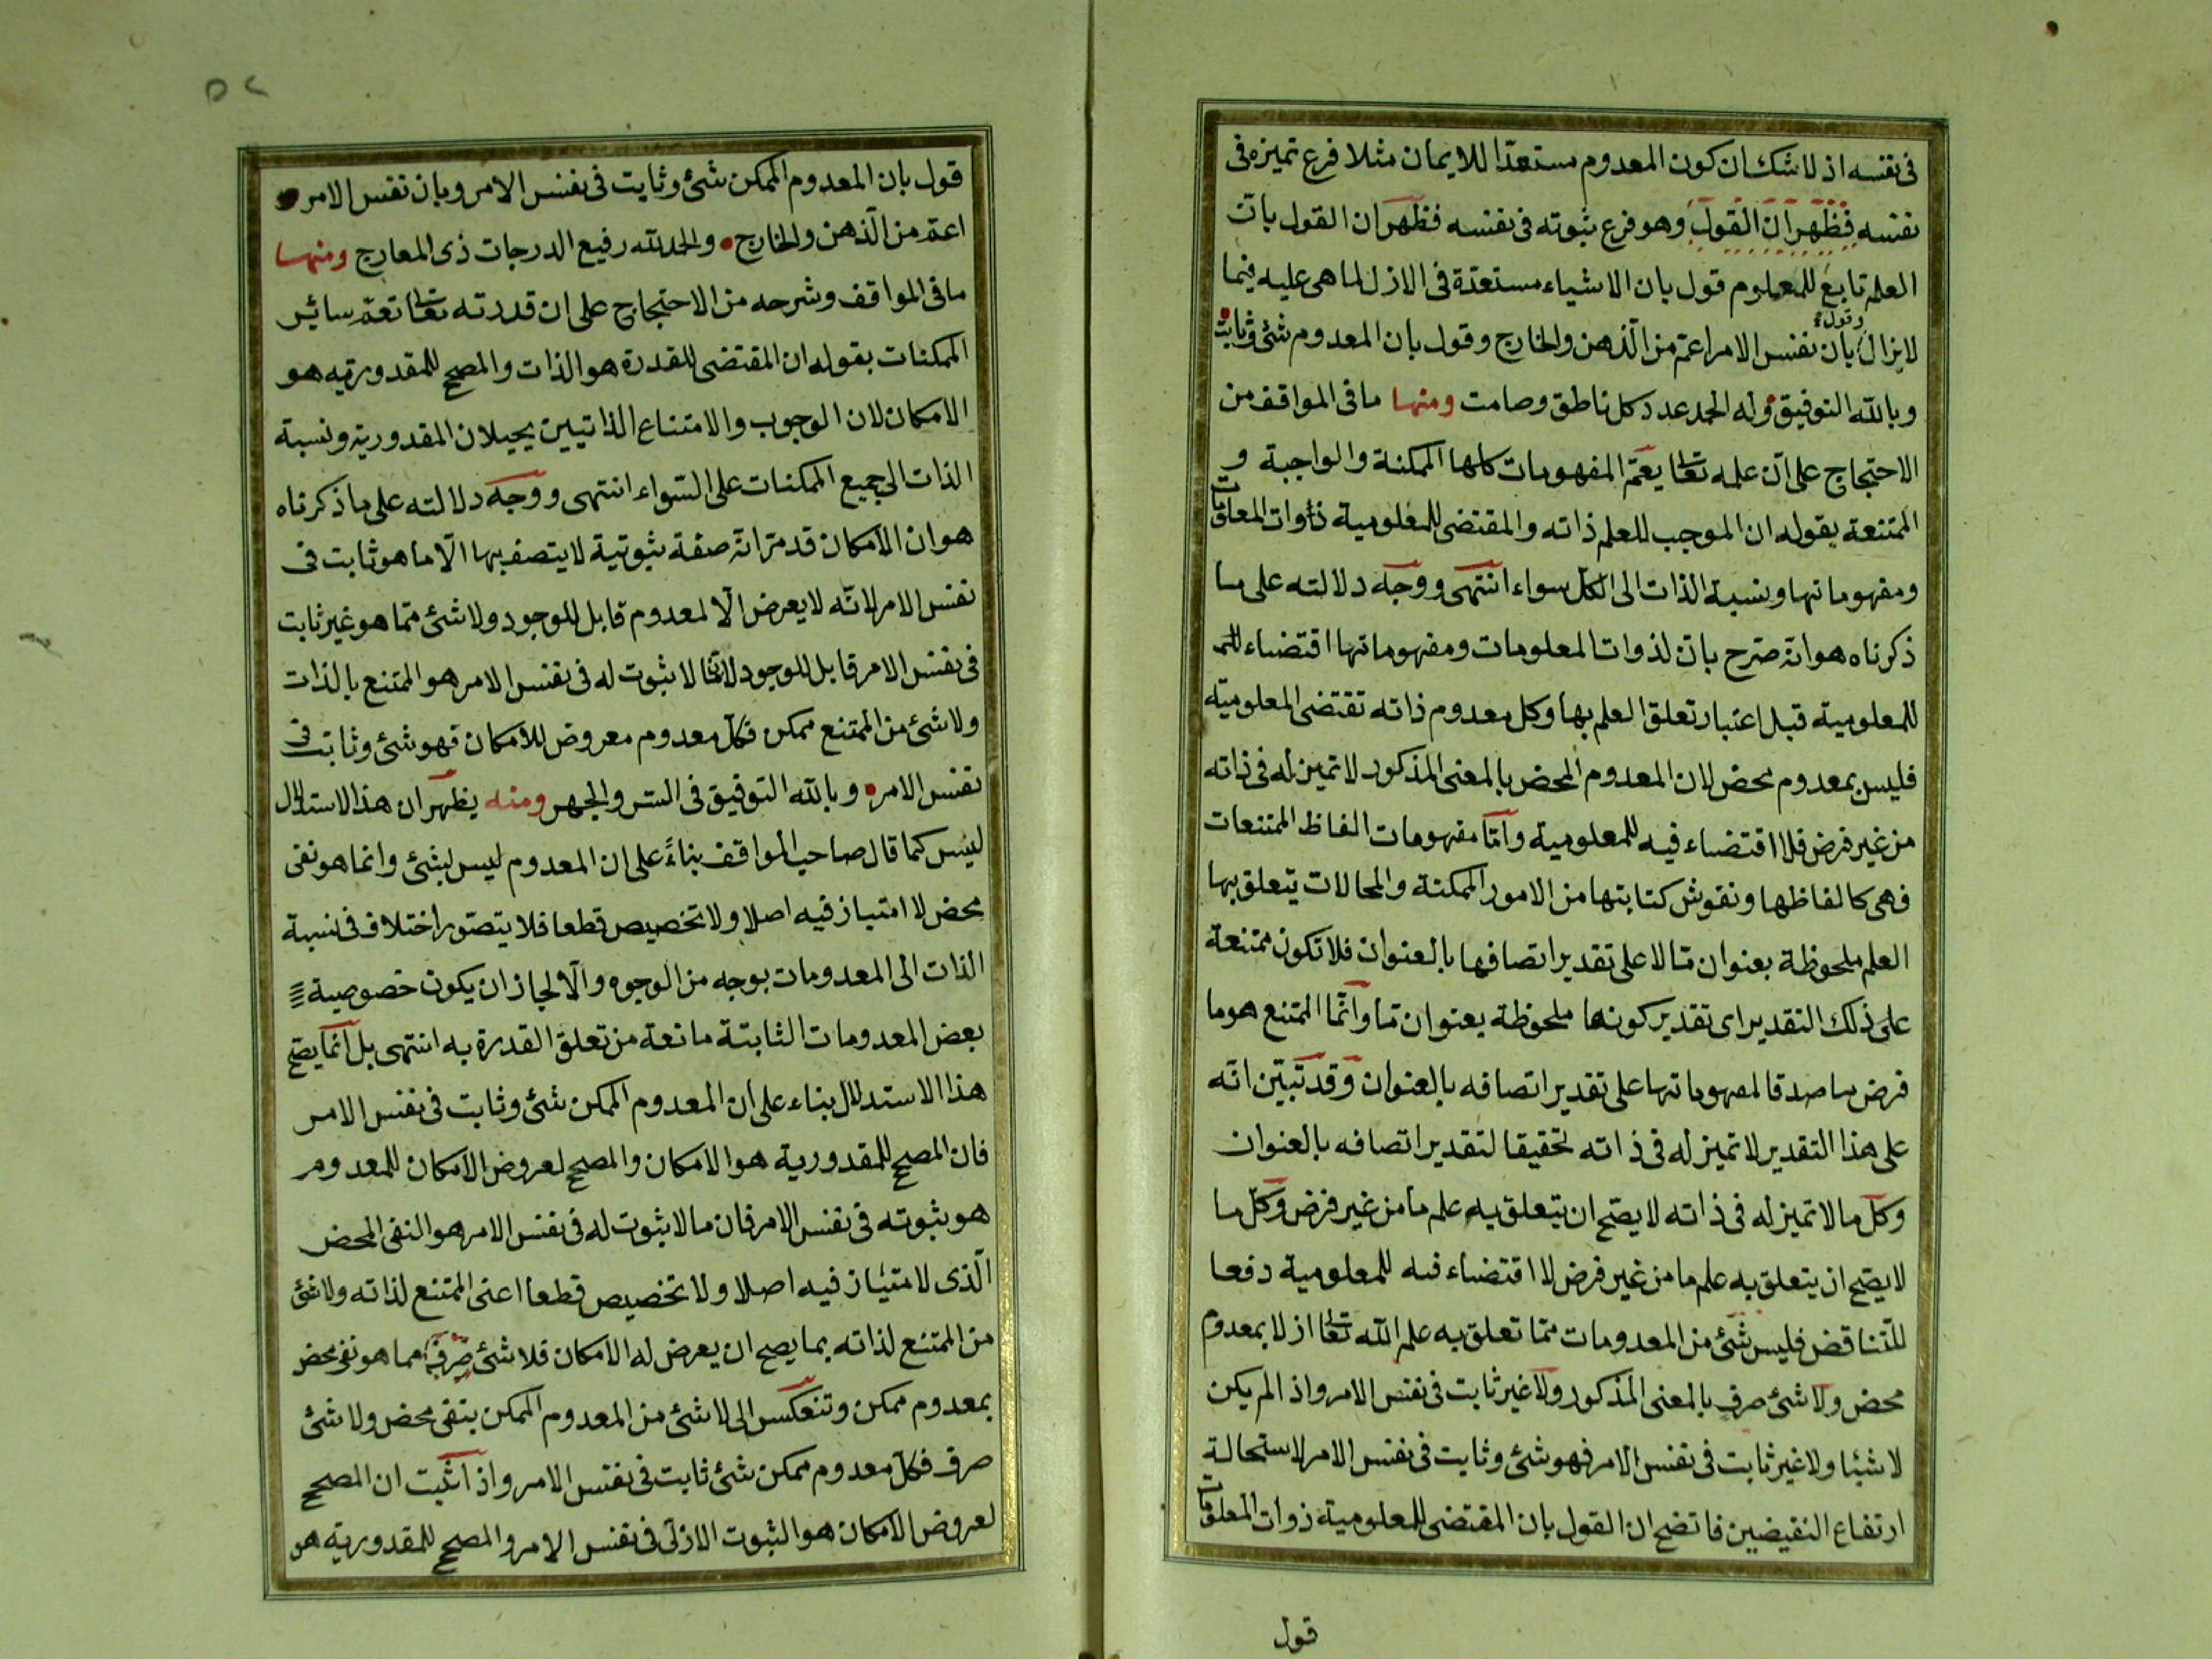 فى نفسه اذ لا شك ان كون المعدوم مستعدّا للايمان مثلا فرع تميزه فى
نفسه فظهر ان القول وهو فرع ثبوته فى نفسه فظهر ان القول بانّ
العلم تابع للمعلوم قول بان الاشياء مستعدّة فى الازل لما هى عليه فيما
لا يزال وقول بان نفس الامر اعمّ من الذّهن والخارج وقول بان المعدوم شئ وثابت
وبالله التوفيق وله الحمد عدد كل ناطق وصامت ومنها ما فى المواقف من
الاحتجاج على انّ علمه تعالى يعمّ المفهومات كلها الممكنة والواجبة و
الممتنعة بقوله ان الموجب للعلم ذاته والمقتضى للمعلومية ذوات المعلومات
ومفهوماتها ونسبة الذات الى الكلّ سواء انتهى ووجه دلالته على ما
ذكرناه هو انه صرّح بانّ لذوات المعلومات ومفهوماتها اقتضاء
للمعلومية قبل اعتبار تعلق العلم بها وكل معدوم ذاته تقتضى المعلومية
فليس بمعدوم محض لان المعدوم المحض بالمعنى المذكور لا تميز له فى ذاته
من غير فرض فلا اقتضاء فيه للمعلومية وامّا مفهومات الفاظ الممتنعات
فهى كالفاظها ونقوش كتابتها من الامور الممكنة والمحالات يتعلق بها
العلم ملحوظة بعنوان مّا لا على تقدير اتصافها بالعنوان فلا تكون ممتنعة
على ذلك التقدير اى تقدير كونها ملحوظة بعنوان مّا وانّما الممتنع هو ما
فرض ما صدقا لمفهوماتها على تقدير اتصافه بالعنوان وقد تبيّن انه
على هذا التقدير لا تميز له فى ذاته تحقيقا لتقدير اتصافه بالعنوان
وكلّ ما لا تميز له فى ذاته لا يصحّ ان يتعلق به علم ما من غير فرض وكلّ ما
لا يصحّ ان يتعلق به علم ما من غير فرض لا اقتضاء فيه للمعلومية دفعا
للتّناقض فليس شئ من المعدومات ممّا تعلق به علم الله تعالى ازلا بمعدوم
محض ولا شئ صرف بالمعنى المذكور ولا غير ثابت فى نفس الامر واذ الم يكن
لا شيئا ولا غير ثابت فى نفس الامر فهو شئ وثابت فى نفس الامر لاستحالة
ارتفاع النقيضين فاتضح ان القول بان المقتضى للمعلومية ذوات المعلومات
قول
قول بان المعدوم الممكن شئ وثابت فى نفس الامر وبان نفس الامر
اعمّ من الذّهن والخارج والحمد لله رفيع الدرجات ذى المعارج ومنها
ما فى المواقف وشرحه من الاحتجاج على ان قدرته تعالى تعمّ سائر
الممكنات بقوله ان المقتضى للقدرة هو الذات والمصحح للمقدوريّه هو
الامكان لان الوجوب والامتناع الذاتيين يحيلان المقدورية ونسبة
الذات الى جميع الممكنات على السّواء انتهى ووجه دلالته على ما ذكرناه
هو ان الامكان قد مرّ انه صفة ثبوتية لا يتصف بها الّا ما هو ثابت فى
نفس الامر لانّه لا يعرض الّا لمعدوم قابل للوجود ولا شئ ممّا هو غير ثابت
فى نفس الامر قابل للوجود لانّ ما لا ثبوت له فى نفس الامر هو الممتنع بالذات
ولا شئ من الممتنع ممكن فكلّ معدوم معروض للامكان فهو شئ وثابت فى
نفس الامر وبالله التوفيق فى السّر والجهر ومنه يظهر ان هذا الاستدلال
ليس كما قال صاحب المواقف بناءً على ان المعدوم ليس بشئ وانما هو نفى
محض لا امتياز فيه اصلا ولا تخصيص قطعا فلا يتصوّر اختلاف فى نسبة
الذات الى المعدومات بوجه من الوجوه والّا لجاز ان يكون خصوصية
بعض المعدومات الثابتة مانعة من تعلق القدرة به انتهى بل انّما يصحّ
هذا الاستدلال بناء على ان المعدوم الممكن شئ وثابت فى نفس الامر
فان المصحح للمقدورية هو الامكان والمصحح لعروض الامكان للمعدوم
هو ثبوته فى نفس الامر فان ما لا ثبوت له فى نفس الامر هو النفى المحض
الّذى لا امتياز فيه اصلا ولا تخصيص قطعا اعنى الممتنع لذاته ولا شئ
من الممتنع لذاته بما يصح ان يعرض له الامكان فلا شئ صرف مما هو نفى محض
بمعدوم ممكن وتنعكس الى لا شئ من المعدوم الممكن بنفى محض ولا شئ
صرف فكل معدوم ممكن شئ ثابت فى نفس الامر واذ اثبت ان المصحح
لعروض الامكان هو الثبوت الازلى فى نفس الامر والمصحح للمقدوريّه هو